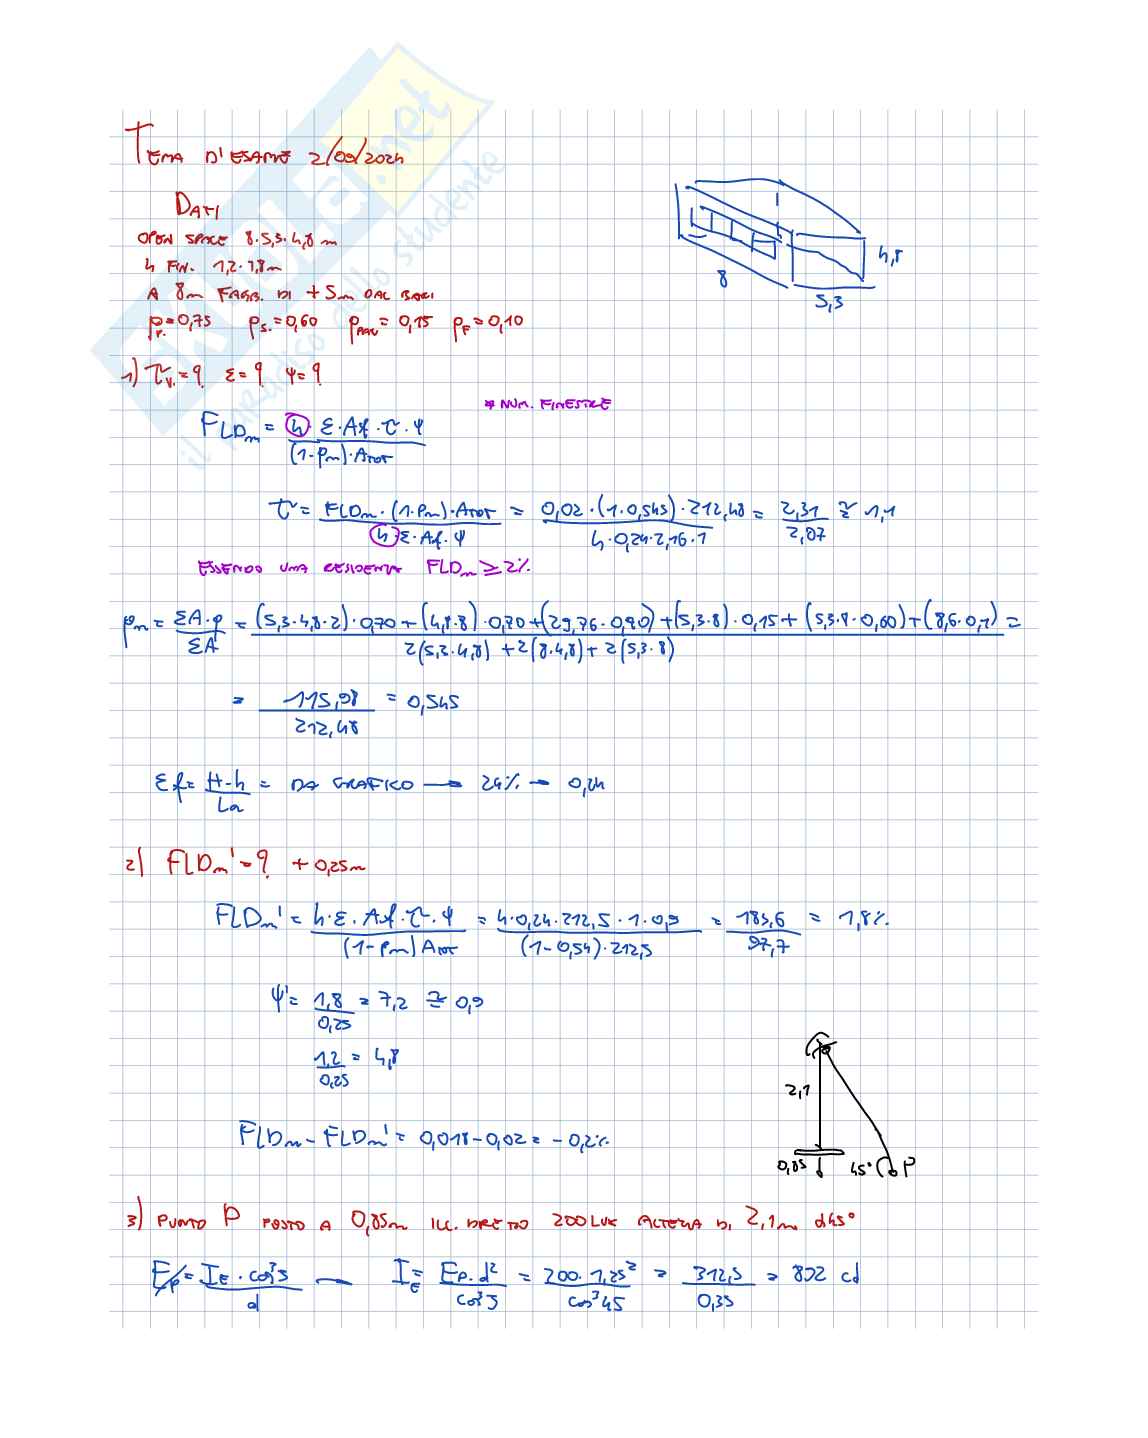 TEMA D'ESAME 2/09/2024
DATI
OPEN SPACE 8·5,3·4,8 m
4 FIN. 1,2·1,8m
A 8m FABB. DI +5m DAL BARI
ρp.=0,75 ρs.=0,60 ρPAV=0,15 ρF=0,10
4,8
8
5,3
1) τv.=? ε=? ψ=?
* NUM. FINESTRE
FLDm = 4·ε·Af·τ·ψ / (1-ρm)·Atot
τ = FLDm·(1-ρm)·Atot / 4·ε·Af·ψ = 0,02·(1-0,545)·212,48 / 4·0,24·2,16·1 = 2,31 / 2,07 ≅ 1,1
ESSENDO UNA RESIDENZA FLDm ≥ 2%
ρm = ΣA·ρ / ΣA = (5,3·4,8·2)·0,70+(4,8·8)·0,70+(29,76·0,90)+(5,3·8)·0,15+(5,3·8·0,60)+(8,6·0,1) / 2(5,3·4,8)+2(8·4,8)+2(5,3·8) =
= 115,98 / 212,48 = 0,545
εf = H-h / La = DA GRAFICO → 24% → 0,24
2) FLDm'=? +0,25m
FLDm' = 4·ε·Af·τ·ψ / (1-ρm)Atot = 4·0,24·212,5·1·0,9 / (1-0,54)·212,5 = 183,6 / 97,7 = 1,8%
ψ' = 1,8 / 0,25 = 7,2 ≅ 0,9
1,2 / 0,25 = 4,8
FLDm - FLDm' = 0,018-0,02 = -0,2%
2,1
0,85 45° P
3) PUNTO P POSTO A 0,85m ILL. DIRETTO 200 LUX ALTEZZA DI 2,1m α45°
Ep = Iε·cos³ϑ / d — Iε = Ep·d² / cos³ϑ = 200·1,25² / cos³45 = 312,5 / 0,35 = 892 cd
SKUOLA.net
il paradiso dello studente